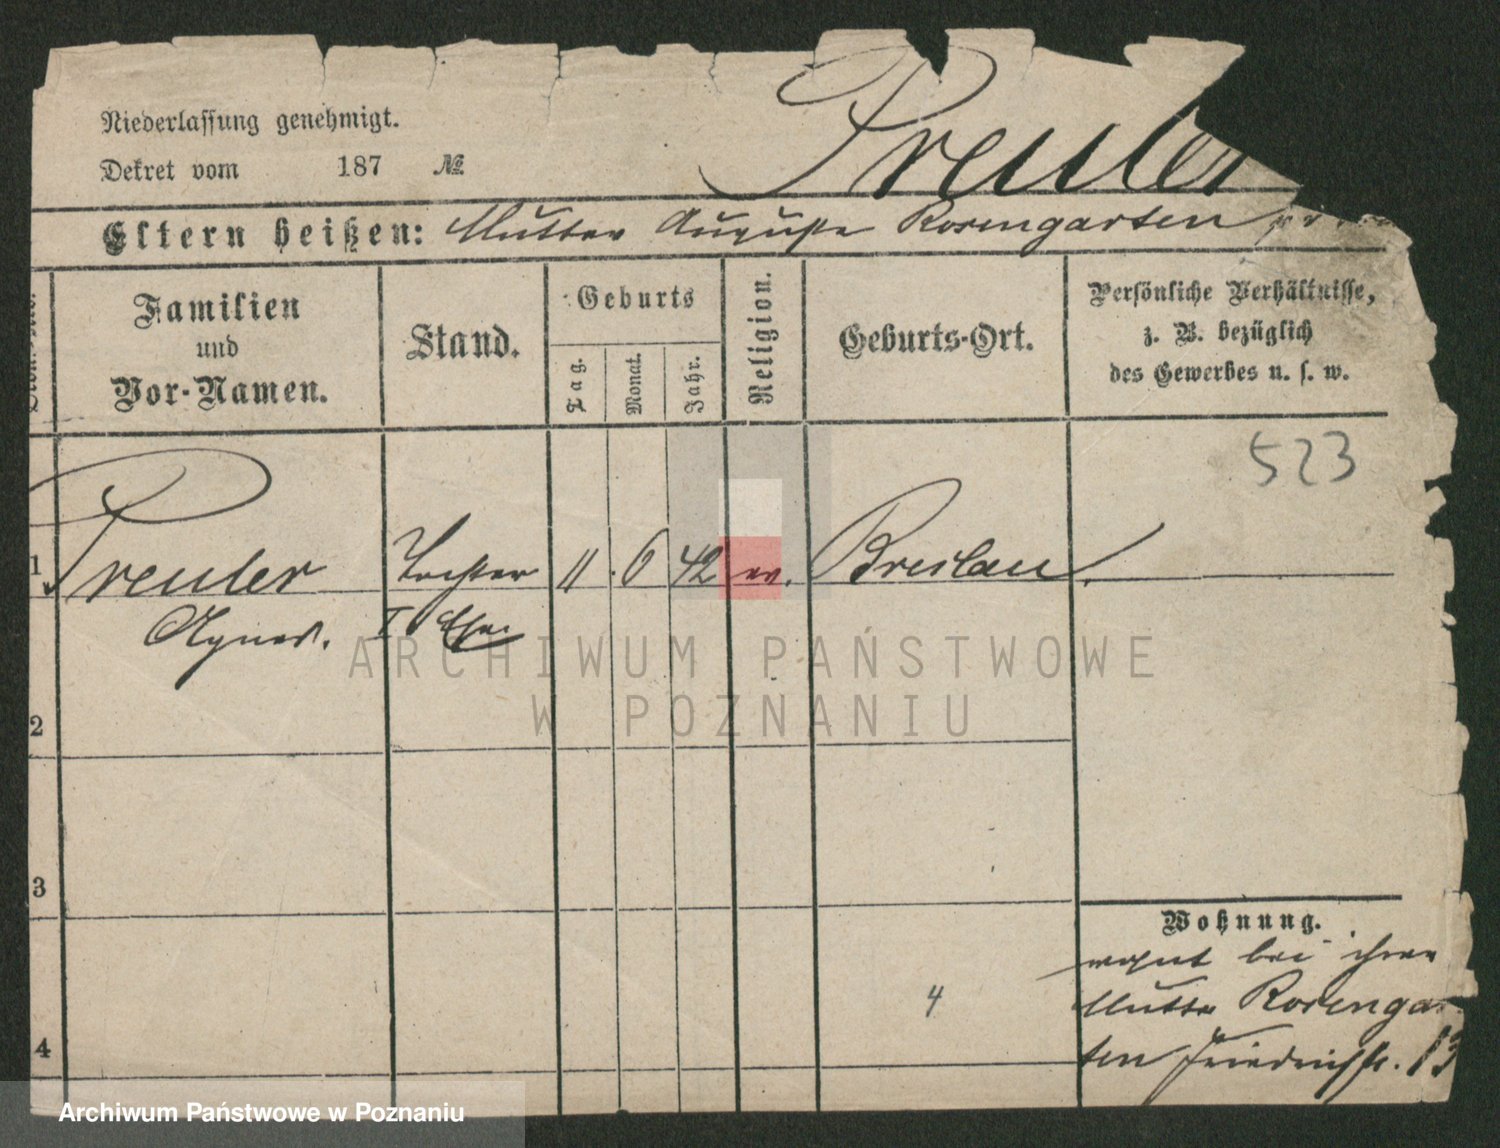 Niederlassung genehmigt.
Dekret vom 187 №
Preuler
Eltern heißen: Mutter Auguste Rosengarten
Familien und Vor-Namen.
Stand.
Geburts
Tag.
Monat.
Jahr.
Religion.
Geburts-Ort.
Persönliche Verhältnisse,
z. B. bezüglich
des Gewerbes u. s. w.
523
1 Preuler Tochter 11. 6 42 ev. Breslau.
Agnes. I Ehe
2
3
4
Wohnung.
wohnt bei ihrer
Mutter Rosengar-
ten Friedrichstr. 13
4
ARCHIWUM PAŃSTWOWE
W POZNANIU
Archiwum Państwowe w Poznaniu